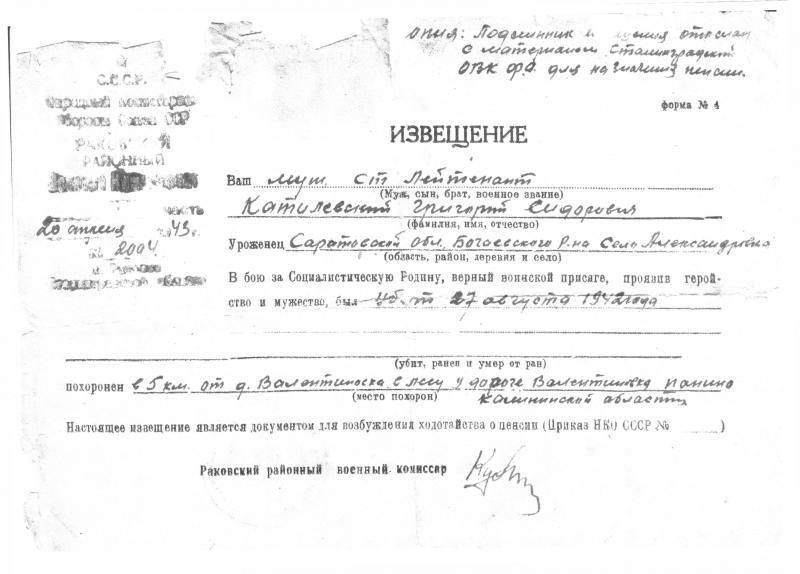 отослан
с материалом Сталинградский
ОВК для назначения пенсии.
форма № 4
С.С.С.Р.
РАКОВСКИЙ
РАЙОННЫЙ
часть
20 апреля 43 г.
№ 2004
ИЗВЕЩЕНИЕ
Ваш муж Ст Лейтенант
(Муж, сын, брат, военное звание)
Катилевский Григорий Сидорович
(фамилия, имя, отчество)
Уроженец Саратовской обл. Р-на Село Александровка
(область, район, деревня и село)
В бою за Социалистическую Родину, верный воинской присяге, проявив герой-
ство и мужество, был уб.т 27 августа 1942 года
(убит, ранен и умер от ран)
похоронен в 5 км. от д. Валентиновка в лесу у дороге Валентиновка Панино
(место похорон) Калининской области
Настоящее извещение является документом для возбуждения ходотайства о пенсии (Приказ НКО СССР № )
Раковский районный военный комиссар